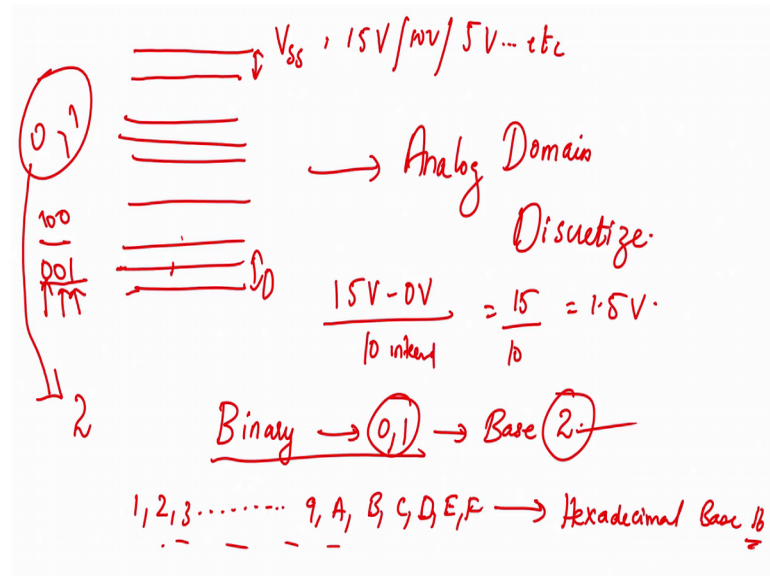 VSS, 15V/10V/5V... etc
0, 1
→ Analog Domain
Discretize.
100
001
0
15V - 0V / 10 = 15 / 10 = 1.5V.
2
Binary → 0,1 → Base 2
1, 2, 3 ......... 9, A, B, C, D, E, F → Hexadecimal Base 16